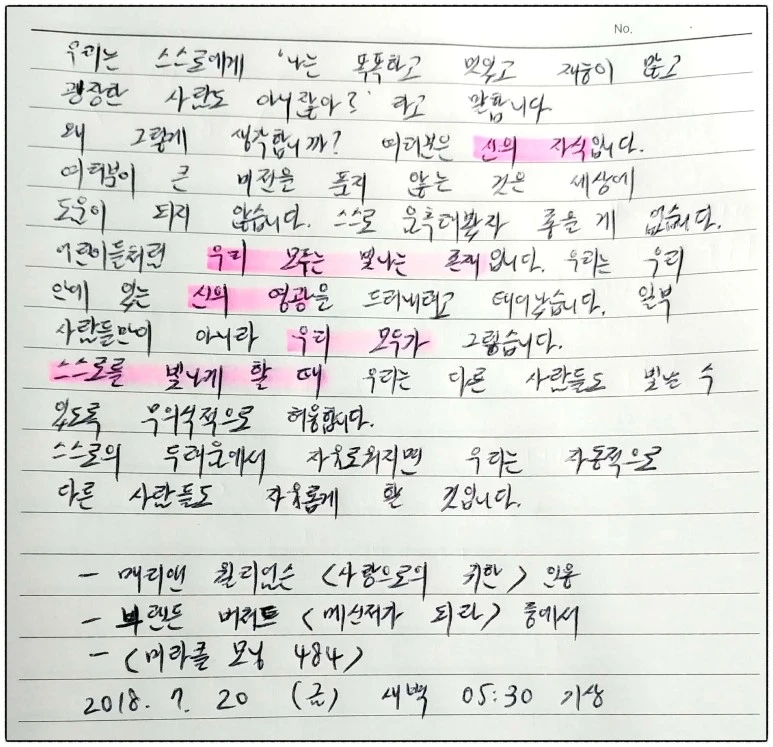 No.
우리는 스스로에게 '나는 똑똑하고 멋있고 재능이 많고
굉장한 사람도 아니잖아?' 라고 말합니다
왜 그렇게 생각합니까? 여러분은 신의 자식입니다.
여러분이 큰 비전을 품지 않는 것은 세상에
도움이 되지 않습니다. 스스로 움츠려봤자 좋을 게 없습니다.
어린이들처럼 우리 모두는 빛나는 존재입니다. 우리는 우리
안에 있는 신의 영광을 드러내려고 태어났습니다. 일부
사람들만이 아니라 우리 모두가 그렇습니다.
스스로를 빛나게 할 때 우리는 다른 사람들도 빛날 수
있도록 무의식적으로 허용합니다.
스스로의 두려움에서 자유로워지면 우리는 자동적으로
다른 사람들도 자유롭게 할 것입니다.
- 메리앤 윌리엄슨 <사랑으로의 귀환> 인용
- 브렌든 버처드 <메신저가 되라> 중에서
- <미라클 모닝 484>
2018. 7. 20 (금) 새벽 05:30 기상